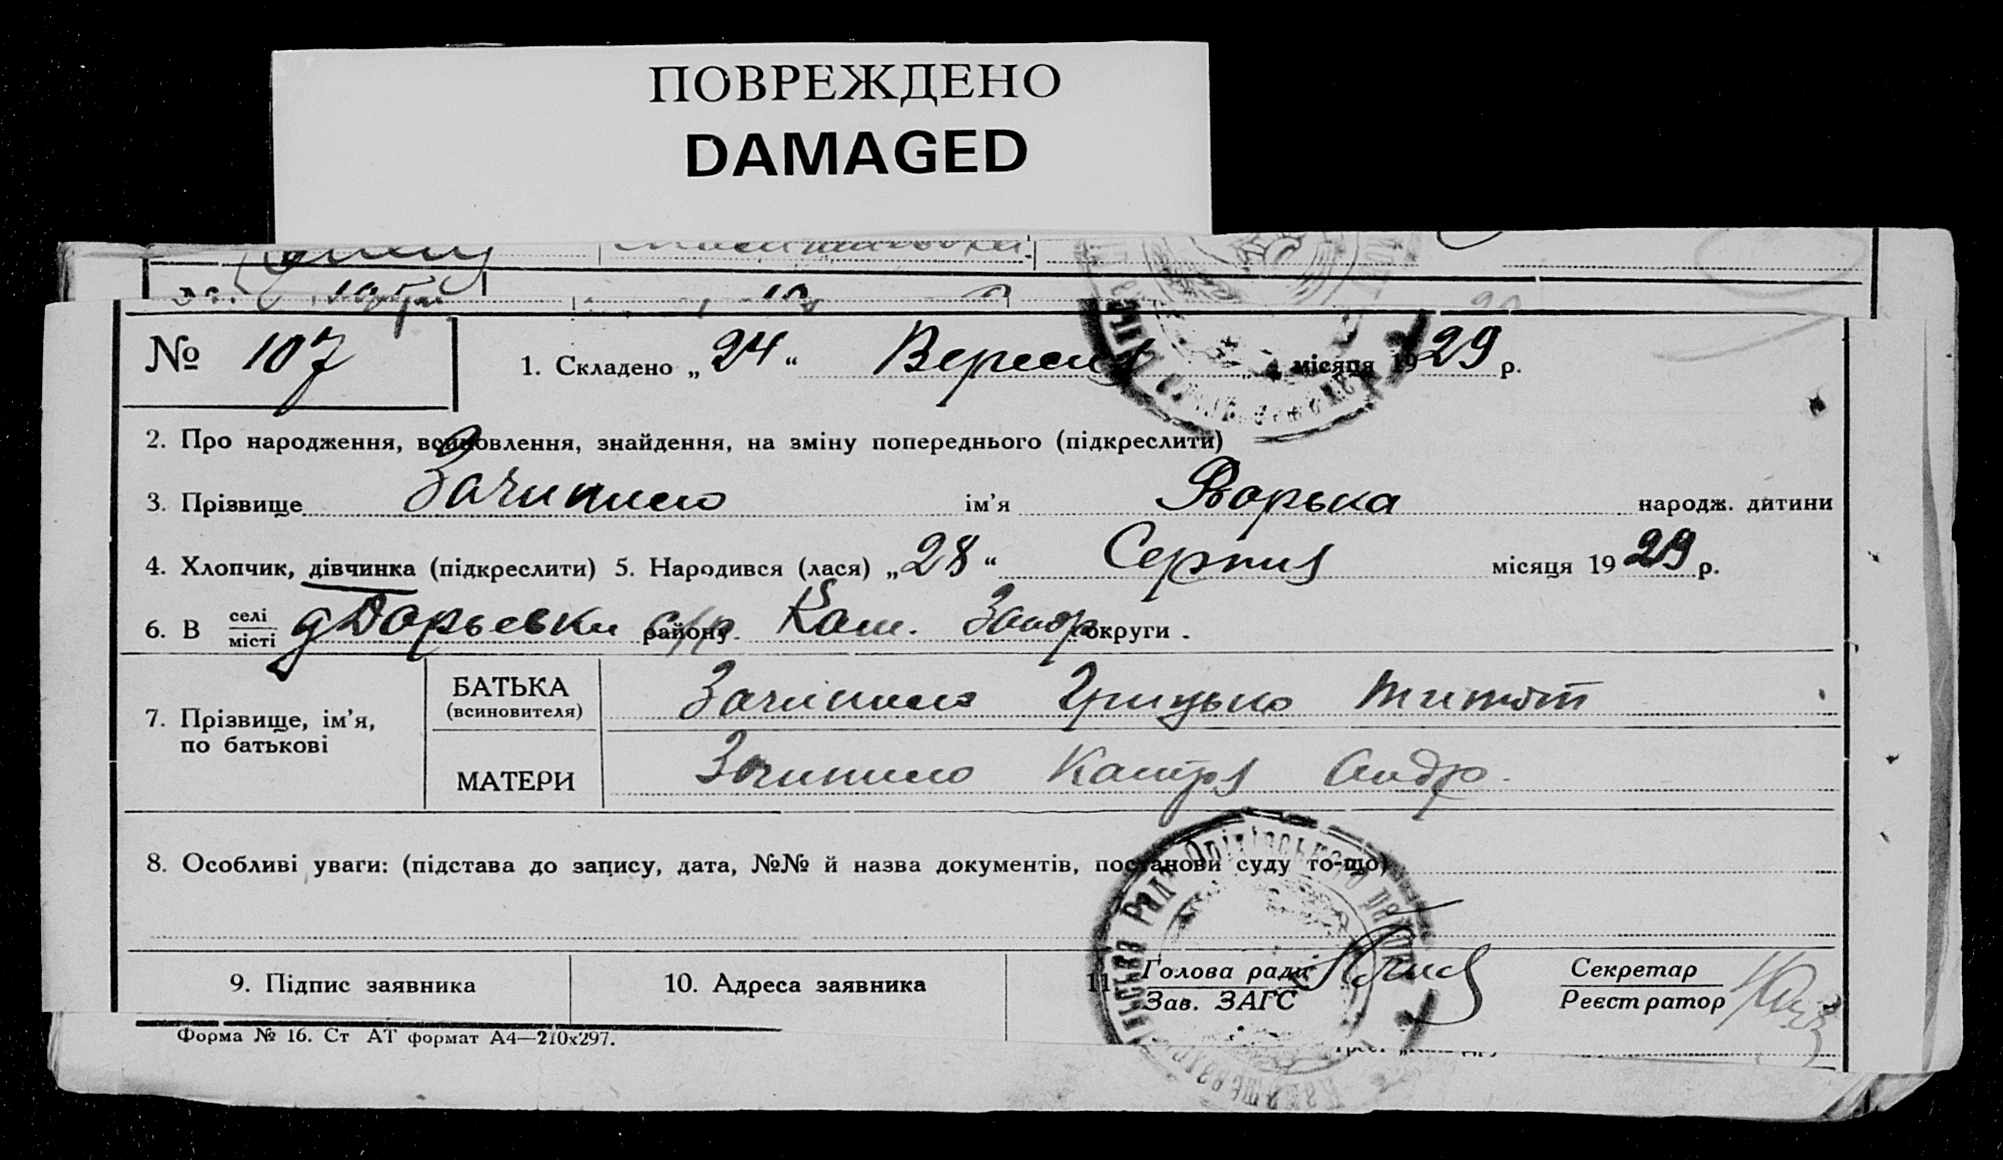 ПОВРЕЖДЕНО
DAMAGED
№ 107
1. Складено „ 24 “ Вересня місяця 1929 р.
2. Про народження, всиновлення, знайдення, на зміну попереднього (підкреслити)
3. Прізвище Зачипило ім’я народж. дитини
4. Хлопчик, дівчинка (підкреслити) 5. Народився (лася) „ 28 “ Серпня місяця 1929 р.
6. В селі/місті району Кам. Запор округи.
7. Прізвище, ім’я, по батькові
БАТЬКА (всиновителя) Зачипило Грицько Тимот
МАТЕРИ Зачипило Катря Андр.
8. Особливі уваги: (підстава до запису, дата, №№ й назва документів, постанови суду то-що)
9. Підпис заявника
10. Адреса заявника
11. Голова ради
Зав. ЗАГС
Секретар
Реєстратор
Рада Оріхівського району
Форма № 16. Ст АТ формат А4—210х297.